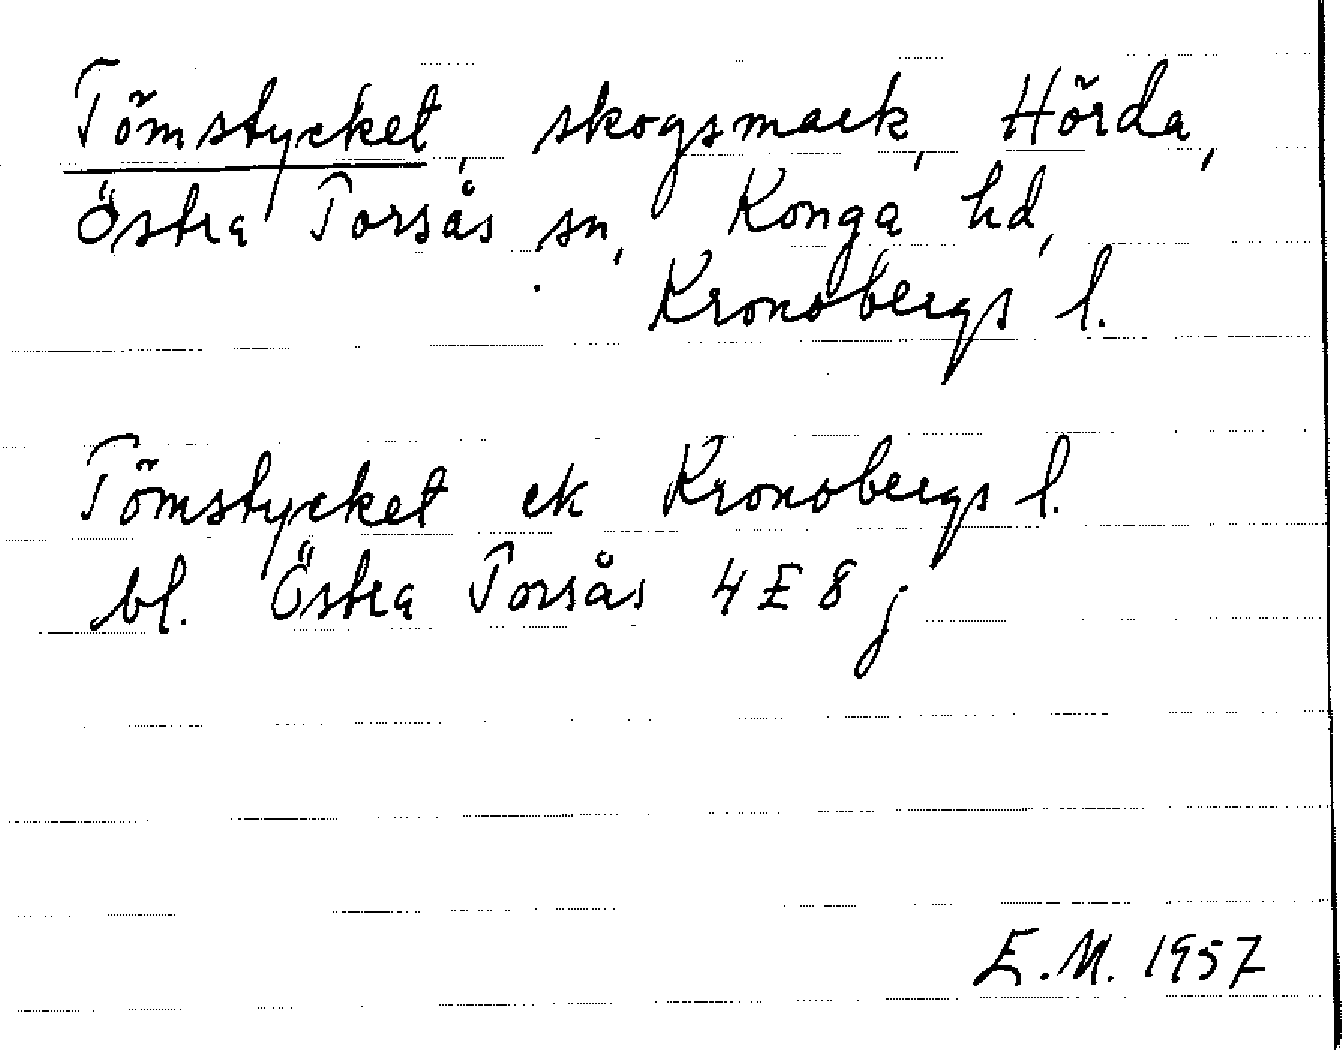 Tömstycket, skogsmark, Hörda,
Östra Torsås sn, Konga hd,
Kronobergs l.
Tömstycket ek Kronobergs l.
bl. Östra Torsås 4E8j
E.M. 1957